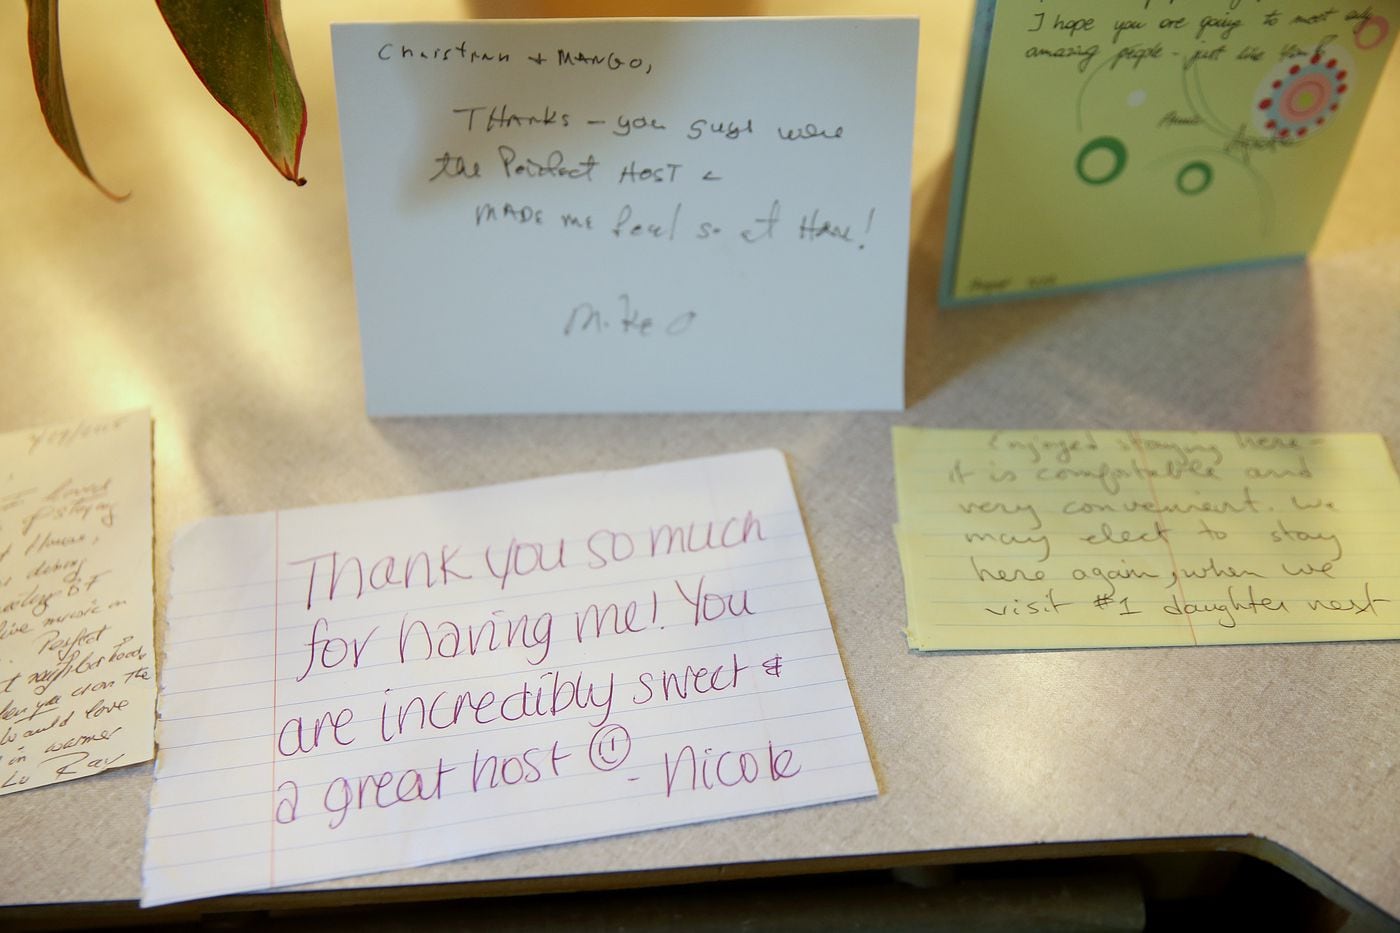 Christian + MANGO,
THANKS - you guys were
the Perfect HOST &
MADE ME feel so at Home!
Mike O
I hope you are going to meet only
amazing people - just like You!
Thank you so much
for having me! You
are incredibly sweet &
a great host
- Nicole
Enjoyed staying here -
it is comfortable and
very convenient. We
may elect to stay
here again, when we
visit #1 daughter next
Loved
of staying
House,
live music in
Perfect
neighborhood
when you
the
would love
in warmer
Ray